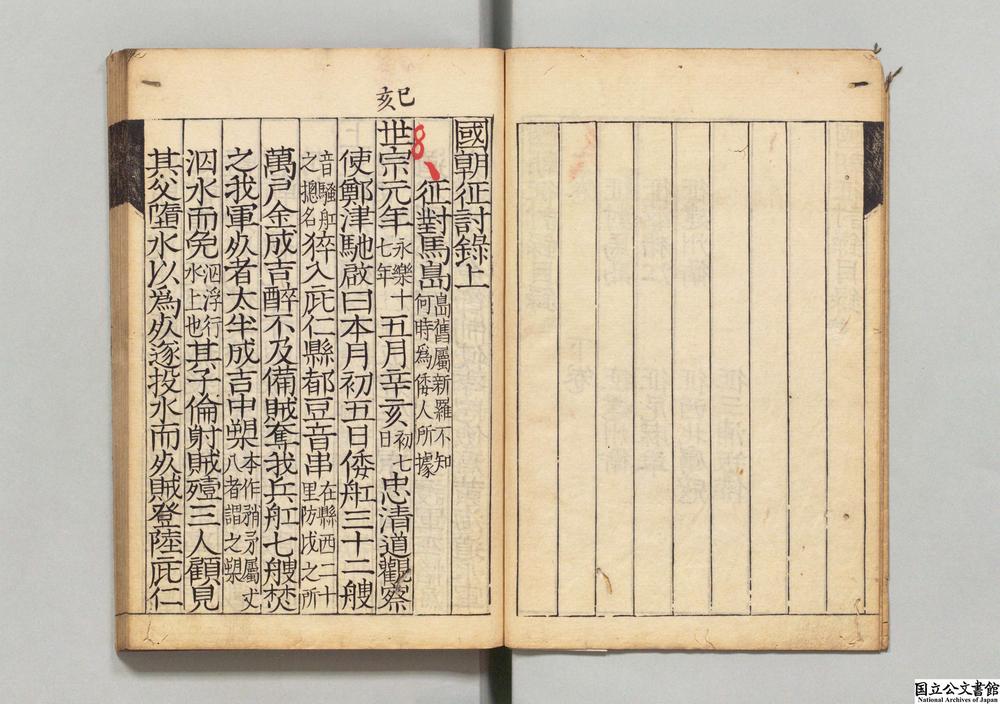 己亥
國朝征討錄上
8、
征對馬島 島舊屬新羅不知何時爲倭人所據
世宗元年 永樂十七年 五月辛亥 初七日 忠清道觀察
使鄭津馳啟曰本月初五日倭舡三十二艘
音騷舡之摠名 猝入庇仁縣都豆音串 在縣西二十里防戍之所
萬戶金成吉醉不及備賊奪我兵舡七艘焚
之我軍死者太半成吉中槊 本作矟矛屬丈八者謂之槊
泅水而免 泅浮行水上也 其子倫射賊殪三人顧見
其父墮水以爲死遂投水而死賊登陸庇仁
国立公文書館
National Archives of Japan